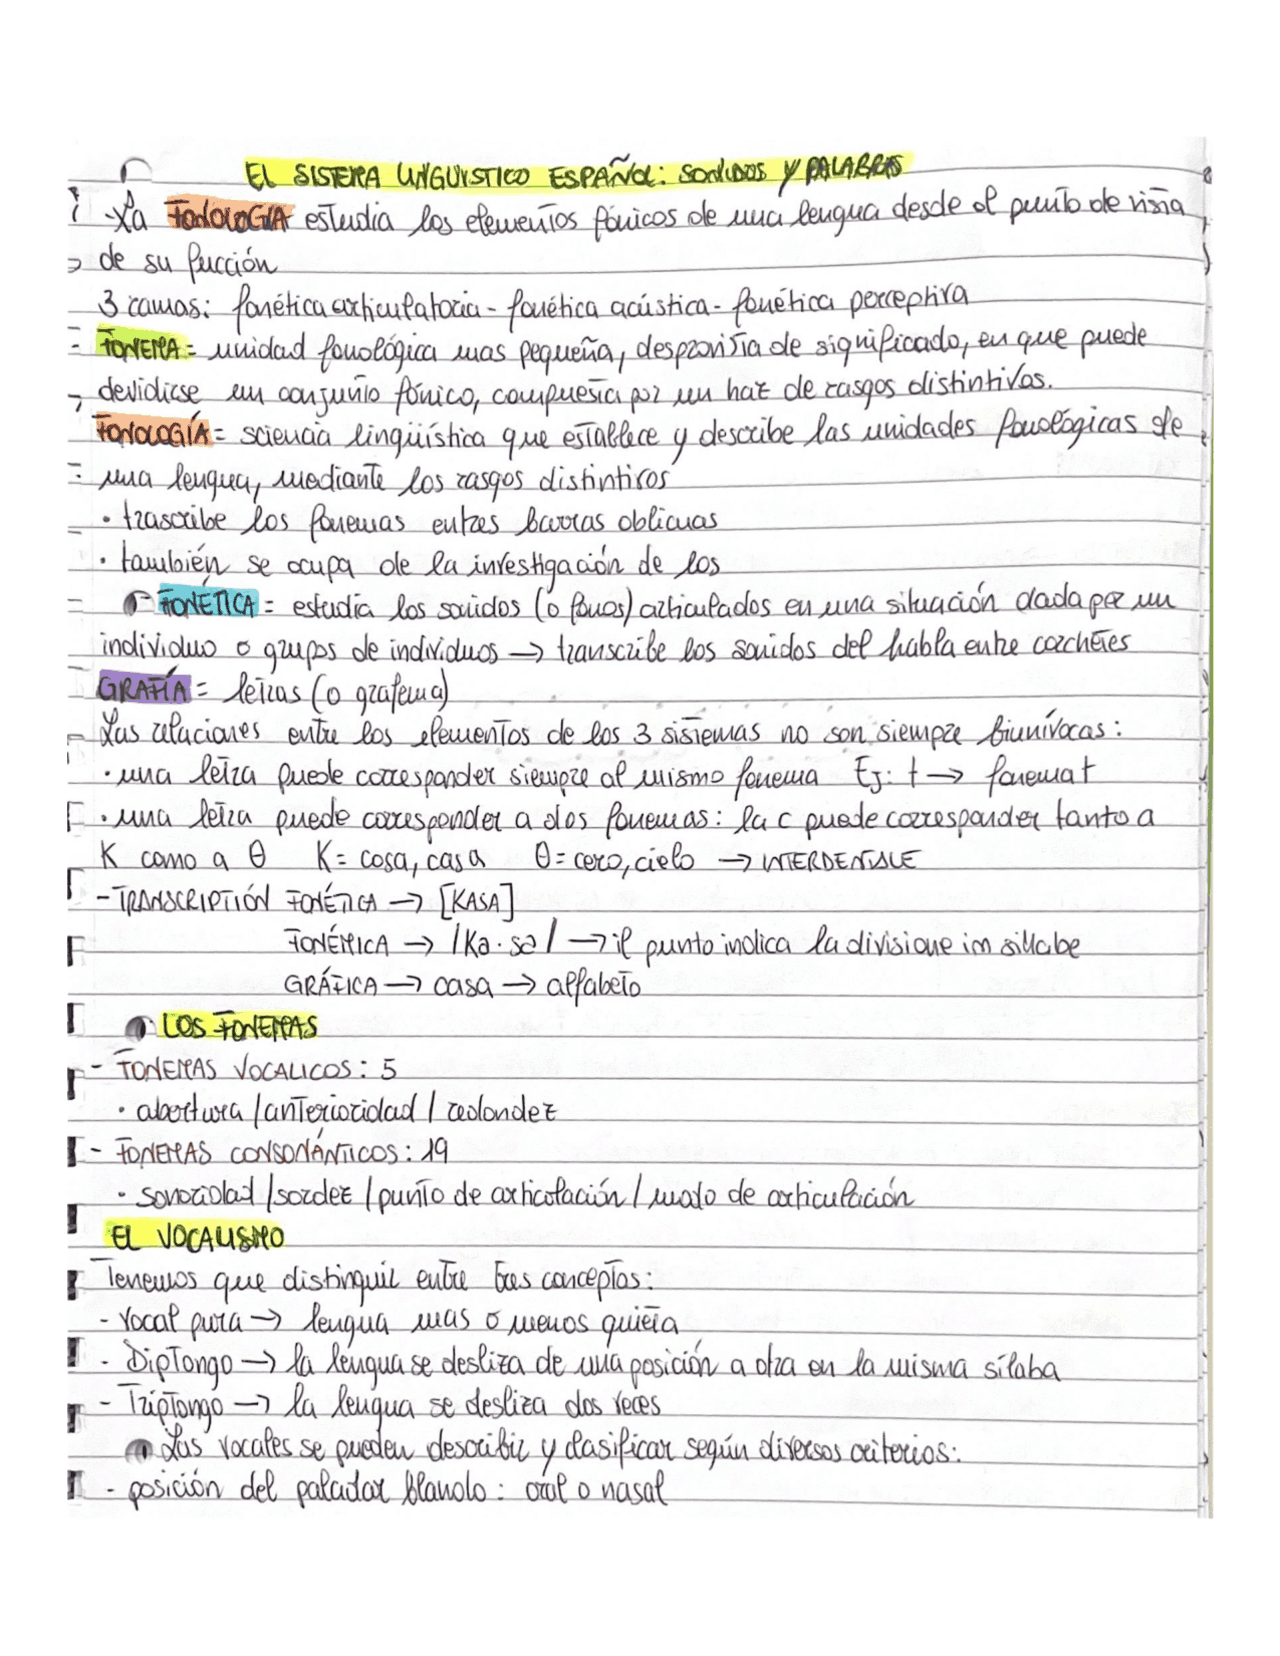 EL SISTEMA LINGUISTICO ESPAÑOL: SONIDOS Y PALABRAS
-La FONOLOGIA estudia los elementos fónicos de una lengua desde el punto de vista
de su fucción
3 ramas: fonética articulatoria - fonética acústica - fonética perceptiva
FONEMA = unidad fonológica mas pequeña, desprovista de significado, en que puede
devidirse un conjunto fónico, compuesta por un haz de rasgos distintivos.
FONOLOGÍA = sciencia lingüística que establece y describe las unidades fonológicas de
una lengua, mediante los rasgos distintivos
• trascribe los fonemas entres barras oblicuas
• también se ocupa de la investigación de los
FONÉTICA = estudia los sonidos (o fonos) articulados en una situación dada por un
individuo o grupos de individuos → transcribe los sonidos del habla entre corchetes
GRAFÍA = letras (o grafema)
Las relaciones entre los elementos de los 3 sistemas no son siempre biunívocas:
• una letra puede corresponder siempre al mismo fonema Ej: t → fonema t
• una letra puede corresponder a dos fonemas: la c puede corresponder tanto a
K como a θ K = cosa, casa θ = cero, cielo → INTERDENTALE
- TRANSCRIPTIÓN FONÉTICA → [KASA]
FONÉMICA → /Ka·sa/ → il punto indica la divisione in sillabe
GRÁFICA → casa → alfabeto
LOS FONEMAS
- FONEMAS VOCALICOS: 5
• abertura / anterioridad / redondez
- FONEMAS CONSONÁNTICOS: 19
• sonoridad / sordez / punto de articolación / modo de articulación
EL VOCALISMO
Tenemos que distinguil entre tres conceptos:
- vocal pura → lengua mas o menos quieta
- Diptongo → la lengua se desliza de una posición a otra en la misma sílaba
- Triptongo → la lengua se desliza dos veces
Las vocales se pueden describir y clasificar según diversos criterios:
- posición del paladar blando: oral o nasal